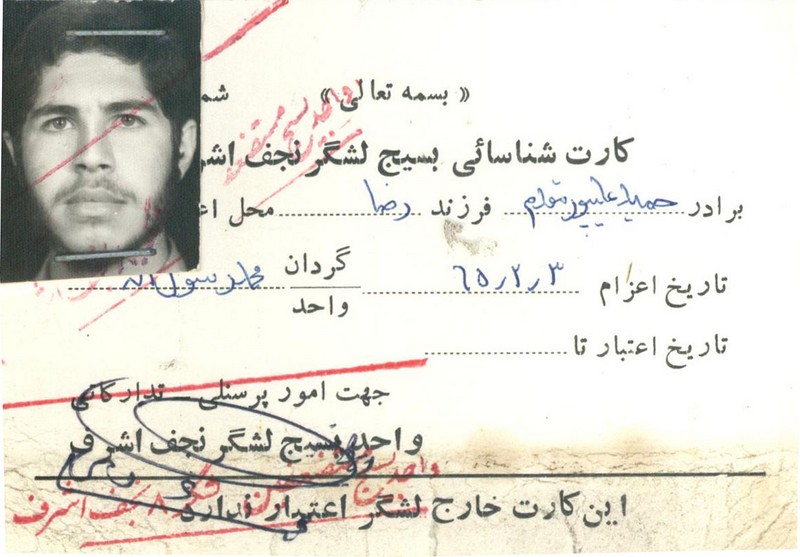 « بسمه تعالی »
شم
کارت شناسائی بسیج لشگر نجف اشر
برادر حمید علیپور مقدم فرزند رضا محل اع
تاریخ اعزام ٦٥/٢/٣ گردان محمد رسول اله
واحد
تاریخ اعتبار تا
جهت امور پرسنلی تدارکاتی
واحد بسیج لشگر نجف اشرف
این کارت خارج لشگر اعتبار ندارد